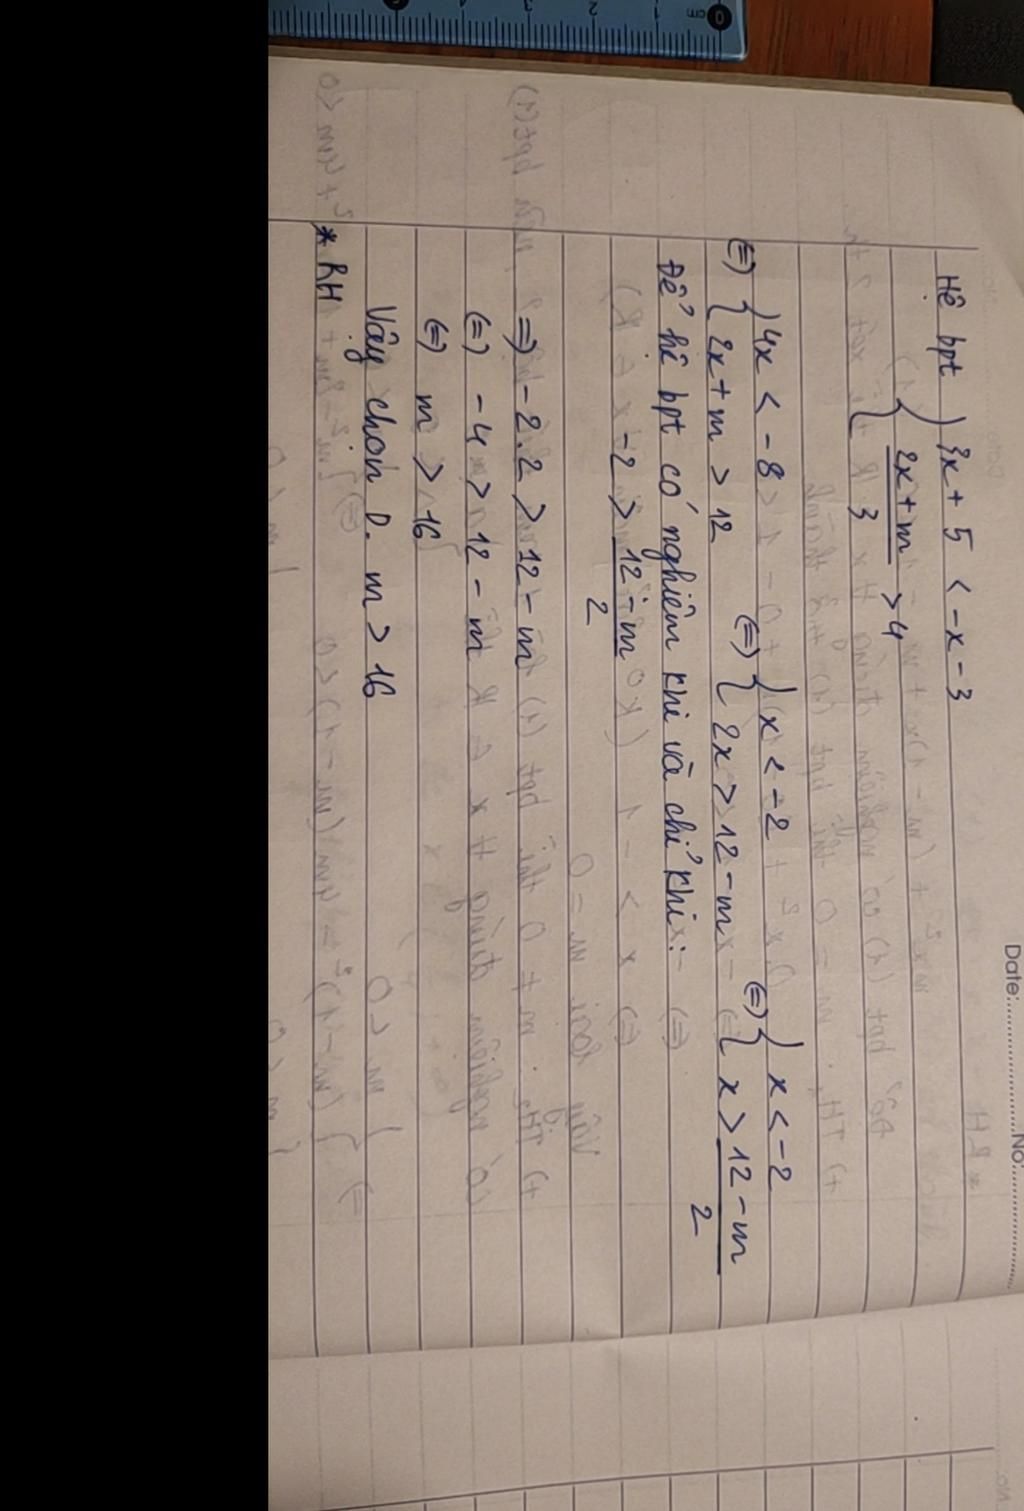 Date:............................No..................
Hệ bpt { 3x + 5 < -x - 3
{ 2x + m / 3 > 4
(=) { 4x < -8 (=) { x < -2 (=) { x < -2
{ 2x + m > 12 { 2x > 12 - m { x > 12 - m / 2
Để hệ bpt có nghiệm khi và chỉ khi:
-2 > 12 - m / 2
=) -2.2 > 12 - m
(=) -4 > 12 - m
(=) m > 16
Vậy chọn D. m > 16
* RH
0 cm 1 2 3 4